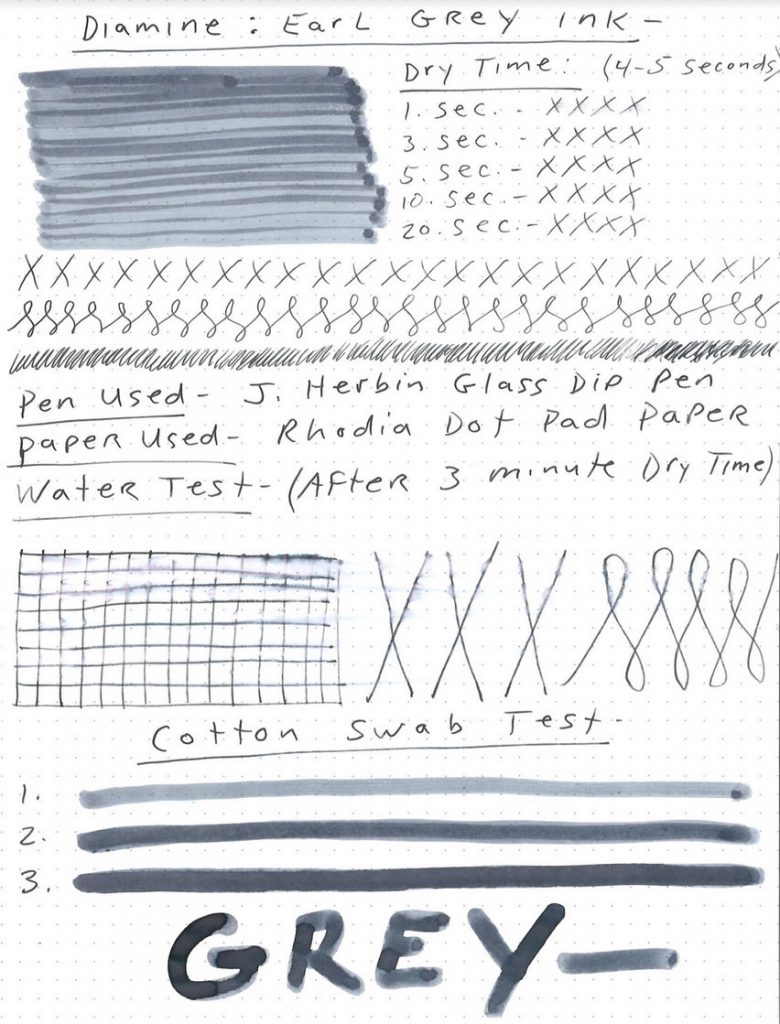 Diamine: Earl Grey Ink-
Dry Time: (4-5 seconds)
1. sec. - XXXX
3. sec. - XXXX
5. sec. - XXXX
10. sec. - XXXX
20. sec. - XXXX
X X X X X X X X X X X X X X X X X X X X X X X X X
Pen Used- J. Herbin Glass Dip Pen
Paper Used- Rhodia Dot Pad Paper
Water Test- (After 3 minute Dry Time)
X X X
Cotton Swab Test-
1.
2.
3.
GREY-